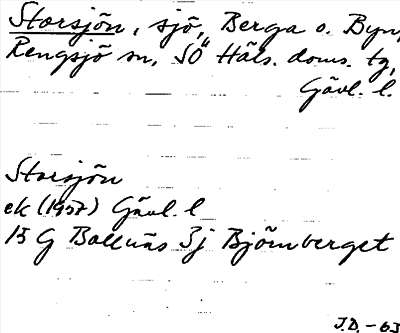 Storsjön, sjö, Berga o. Byn,
Rengsjö sn, SÖ Häls. doms. tg,
Gävl. l.
Storsjön
ek (1957) Gävl. l
15 G Bollnäs 3j Björnberget
J.D. - 63